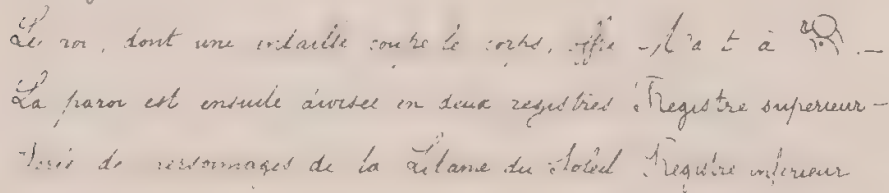 Le roi, dont une entaille coupe le corps, offre à .—
La paroi est ensuite divisée en deux registres Registre supérieur —
Série de personnages de la Litanie du Soleil Registre inférieur